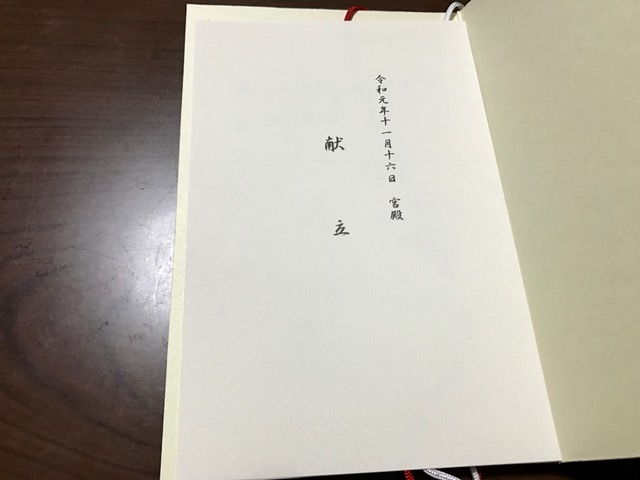 令和元年十一月十六日　宮殿
献立